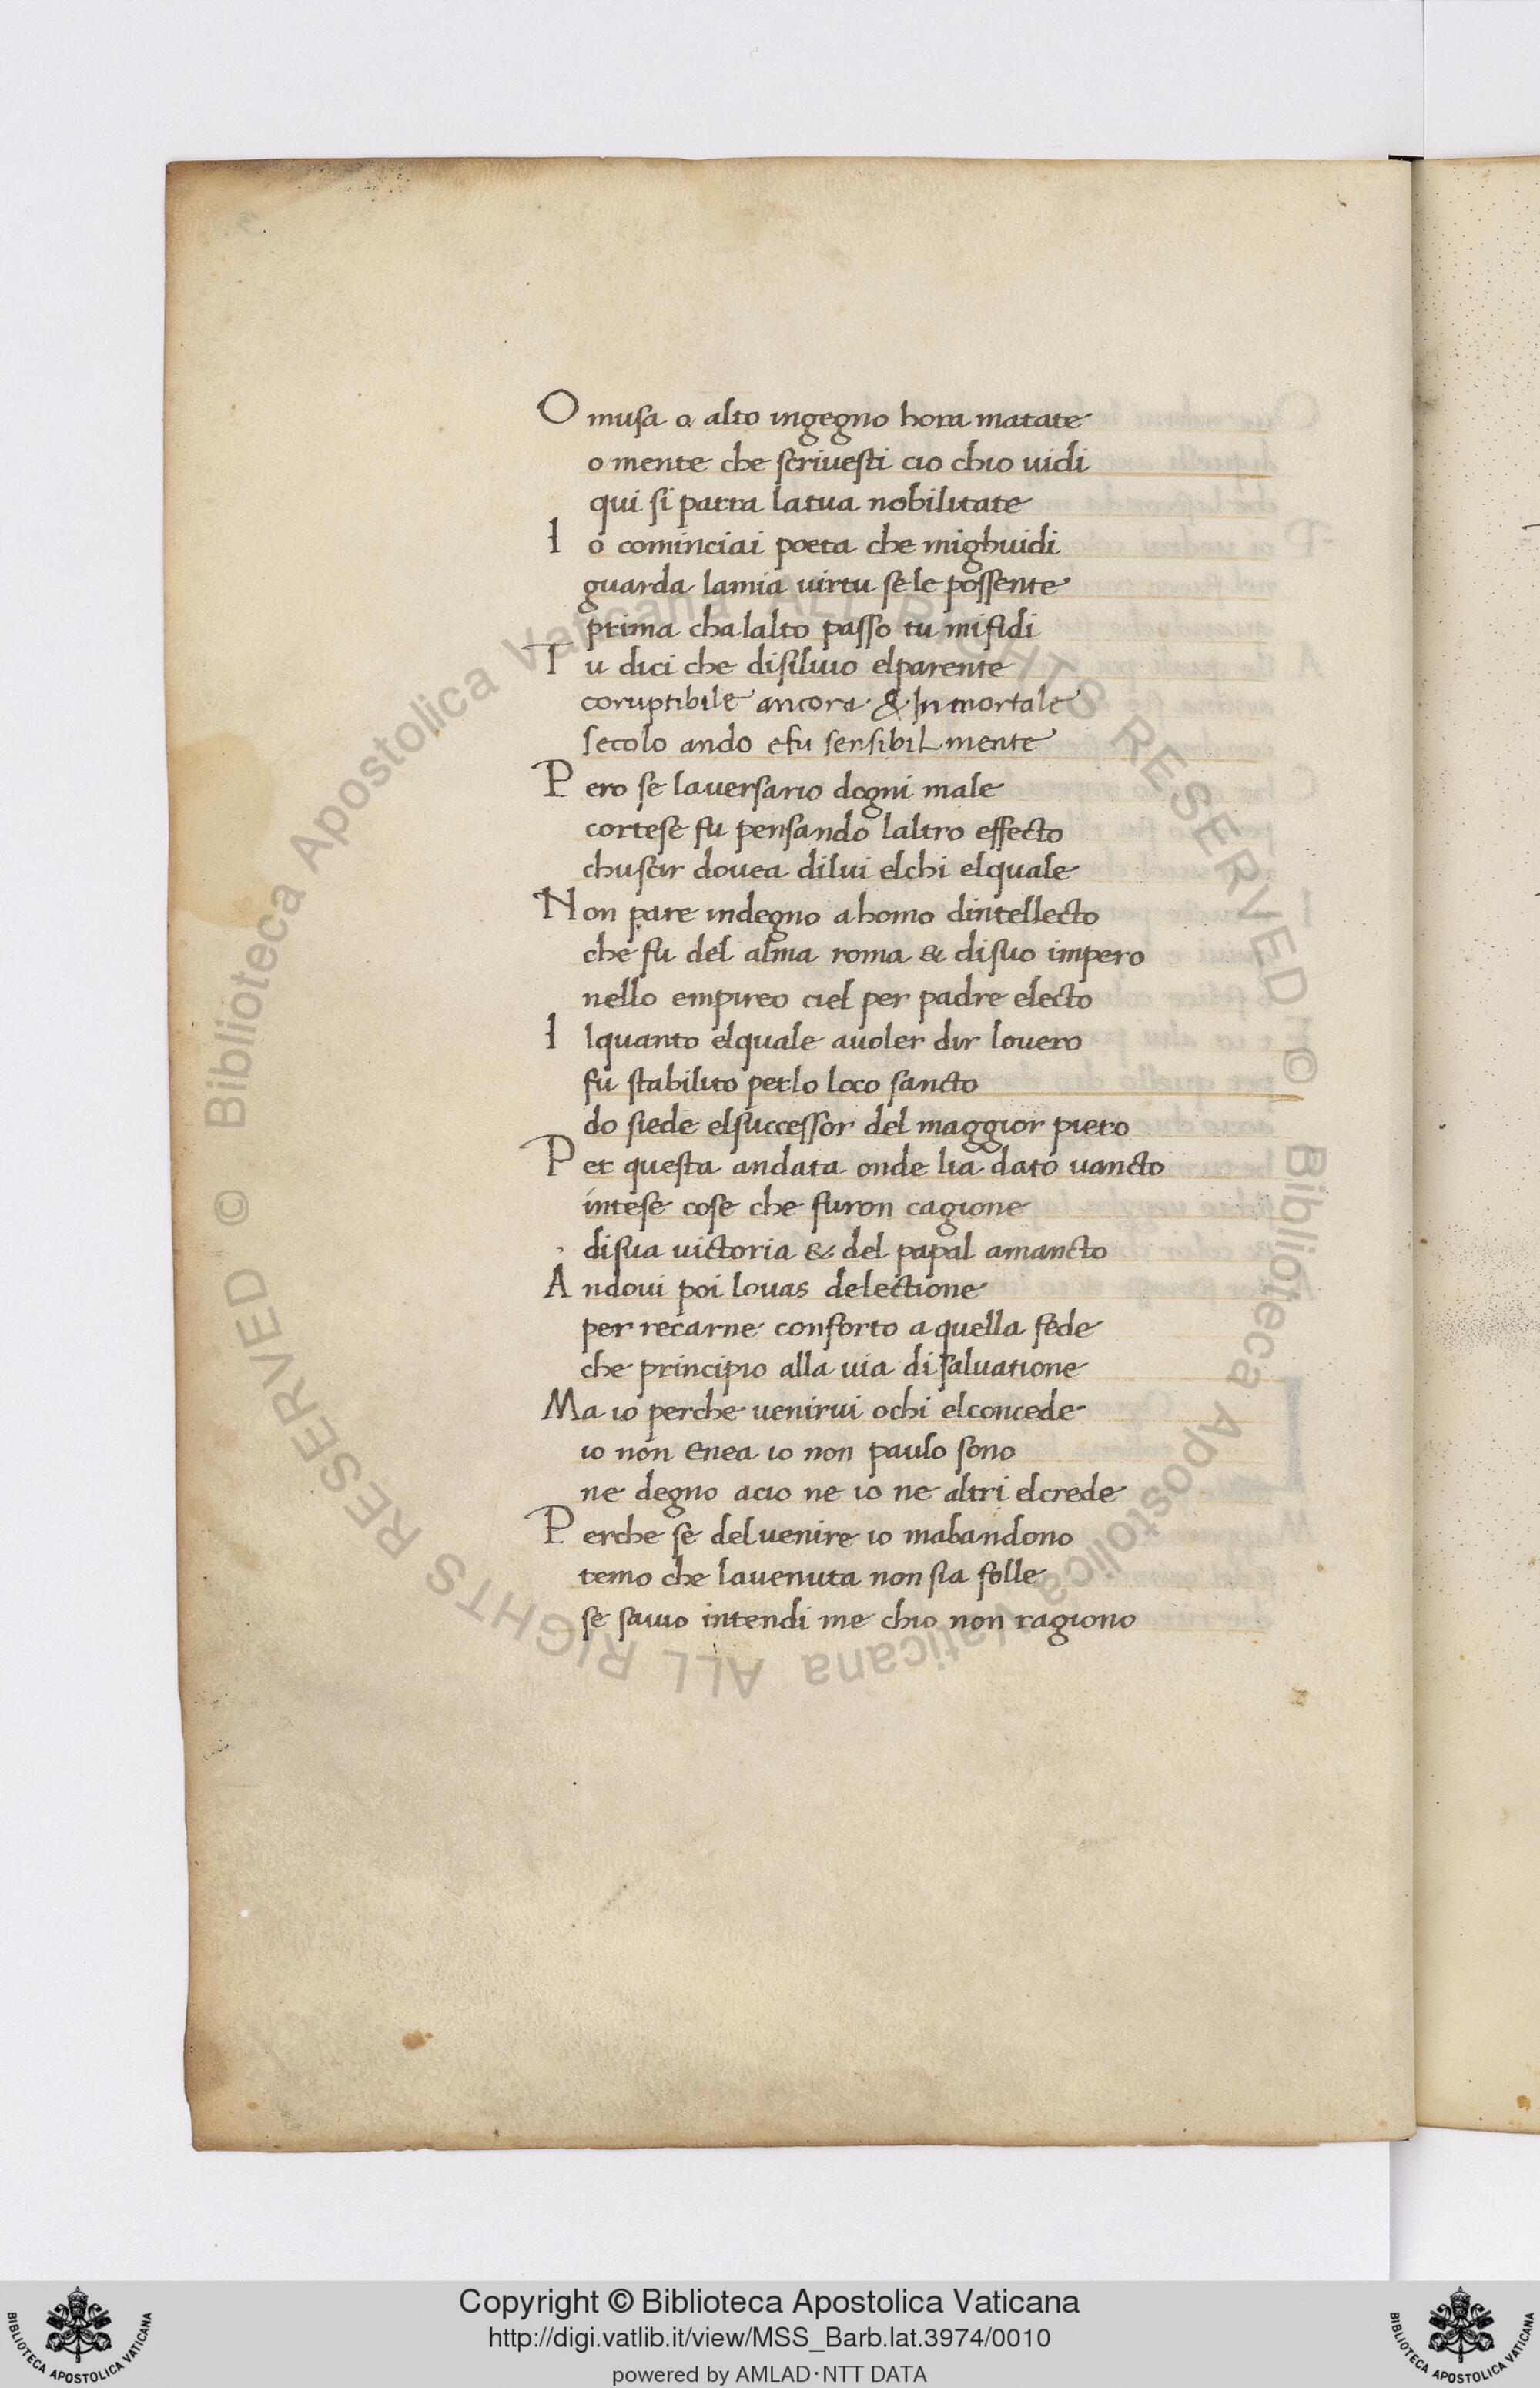 O musa o alto ingegno hora matate
o mente che scrivesti cio chio uidi
qui si parra latua nobilitate
I o cominciai poeta che mighuidi
guarda lamia uirtu sele possente
prima chalalto passo tu mifidi
T u dici che disiluio elparente
coruptibile ancora & In mortale
secolo ando efu sensibilmente
P ero se lauersario dogni male
cortese fu pensando laltro effecto
chuscir douea dilui elchi elquale
N on pare indegno ahomo dintellecto
che fu del alma roma & disuo impero
nello empireo ciel per padre electo
I lquanto elquale auoler dir louero
fu stabilito perlo loco sancto
do siede elsuccessor del maggior piero
P er questa andata onde lia dato uancto
intese cose che furon cagione
disua uictoria & del papal amancto
A ndoui poi louas delectione
per recarne conforto aquella fede
che principio alla uia disaluatione
Ma io perche uenirui ochi elconcede
io non Enea io non paulo sono
ne degno acio ne io ne altri elcrede
P erche se deluenire io mabandono
temo che lauenuta non sia folle
se sauio intendi me chio non ragiono
Copyright © Biblioteca Apostolica Vaticana
http://digi.vatlib.it/view/MSS_Barb.lat.3974/0010
powered by AMLAD·NTT DATA
BIBLIOTECA APOSTOLICA VATICANA
BIBLIOTECA APOSTOLICA VATICANA
© Biblioteca Apostolica Vaticana ALL RIGHTS RESERVED
© Biblioteca Apostolica Vaticana ALL RIGHTS RESERVED